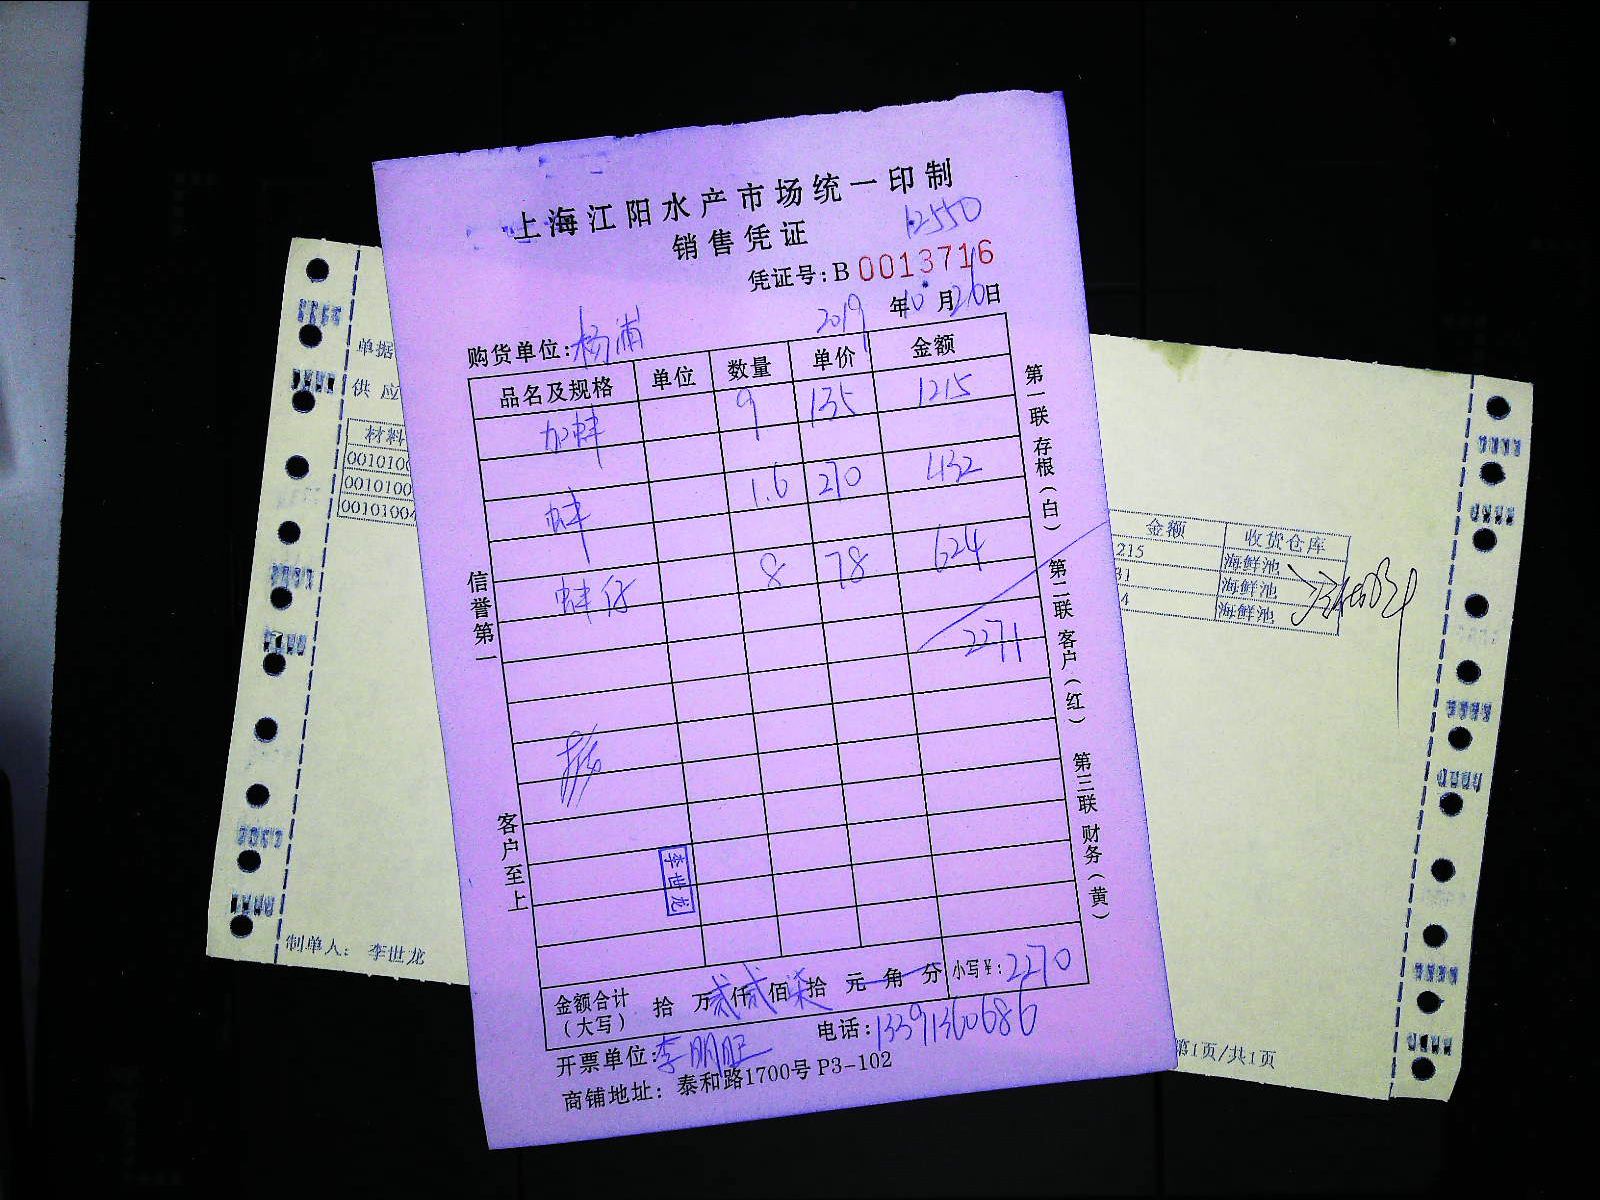 上海江阳水产市场统一印制
销售凭证
12550
凭证号:B 0013716
2019 年10月26日
购货单位:杨浦
品名及规格 单位 数量 单价 金额
加蚌 9 135 1215
蚌 1.6 270 432
蚌仔 8 78 624
2271
李世龙
金额合计(大写) 拾 万贰仟贰佰柒拾 元 角 分 小写¥:2270
开票单位:李明旺 电话:13391360686
商铺地址: 泰和路1700号 P3-102
信誉第一
客户至上
第一联 存根(白)
第二联 客户(红)
第三联 财务(黄)
单据
供 应
材料
0010100
0010100
00101004
制单人: 李世龙
金额 收货仓库
215 海鲜池
31 海鲜池
4 海鲜池
第1页/共1页